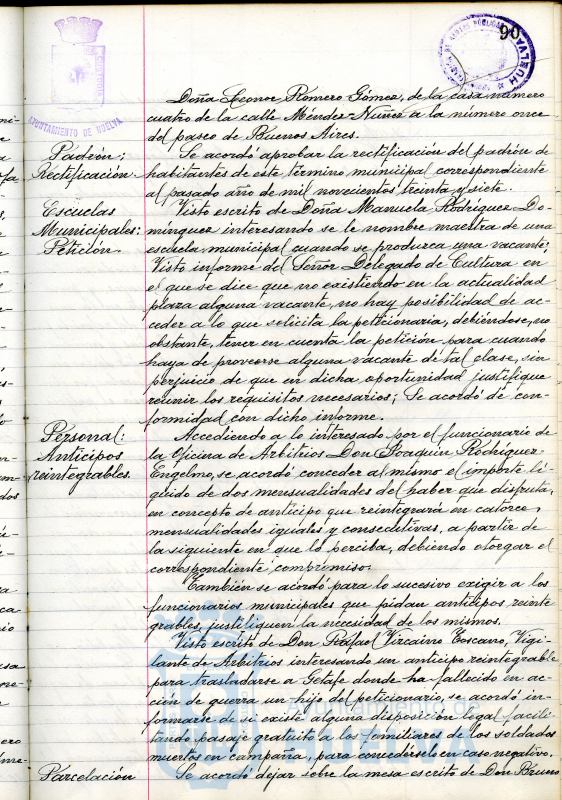 90
AYUNTAMIENTO DE HUELVA
HUELVA
Doña Leonor Romero Gómez, de la casa número
cuatro de la calle Méndez Núñez a la número once
del paseo de Buenos Aires.
Padrón:
Rectificación.
Se acordó aprobar la rectificación del padrón de
habitantes de este término municipal correspondiente
al pasado año de mil novecientos treinta y siete.
Escuelas
Municipales:
Petición.
Visto escrito de Doña Manuela Rodríguez Do-
minguez interesando se le nombre maestra de una
escuela municipal cuando se produzca una vacante;
Visto informe del Señor Delegado de Cultura en
el que se dice que no existiendo en la actualidad
plaza alguna vacante, no hay posibilidad de ac-
ceder a lo que solicita la peticionaria, debiéndose, no
obstante, tener en cuenta la petición para cuando
haya de proveerse alguna vacante de tal clase, sin
perjuicio de que en dicha oportunidad justifique
reunir los requisitos necesarios; Se acordó de con-
formidad con dicho informe.
Personal:
Anticipos
reintegrables.
Accediendo a lo interesado por el funcionario de
la Oficina de Arbitrios Don Joaquín Rodríguez
Engelmo, se acordó conceder al mismo el importe lí-
quido de dos mensualidades del haber que disfruta,
en concepto de anticipo que reintegrará en catorce
mensualidades iguales y consecutivas, a partir de
la siguiente en que lo perciba, debiendo otorgar el
correspondiente compromiso.
También se acordó para lo sucesivo exigir a los
funcionarios municipales que pidan anticipos reinte
grables, justifiquen la necesidad de los mismos.
Visto escrito de Don Rafael Vizcaino Toscano, Vigi-
lante de Arbitrios interesando un anticipo reintegrable
para trasladarse a Getafe donde ha fallecido en ac-
ción de guerra un hijo del peticionario, se acordó in-
formarse de si existe alguna disposición legal facili-
tando pasaje gratuito a los familiares de los soldados
muertos en campaña, para concedérselo en caso negativo.
Parcelación
Se acordó dejar sobre la mesa escrito de Don Bruno
Ayuntamiento de